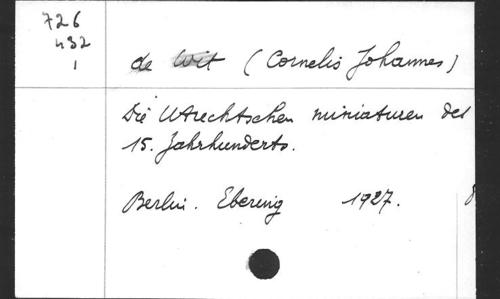 726
432
1
de Wit (Cornelis Johannes)
Die Utrechtschen miniaturen des
15. Jahrhunderts.
Berlin. Ebering 1927. 8